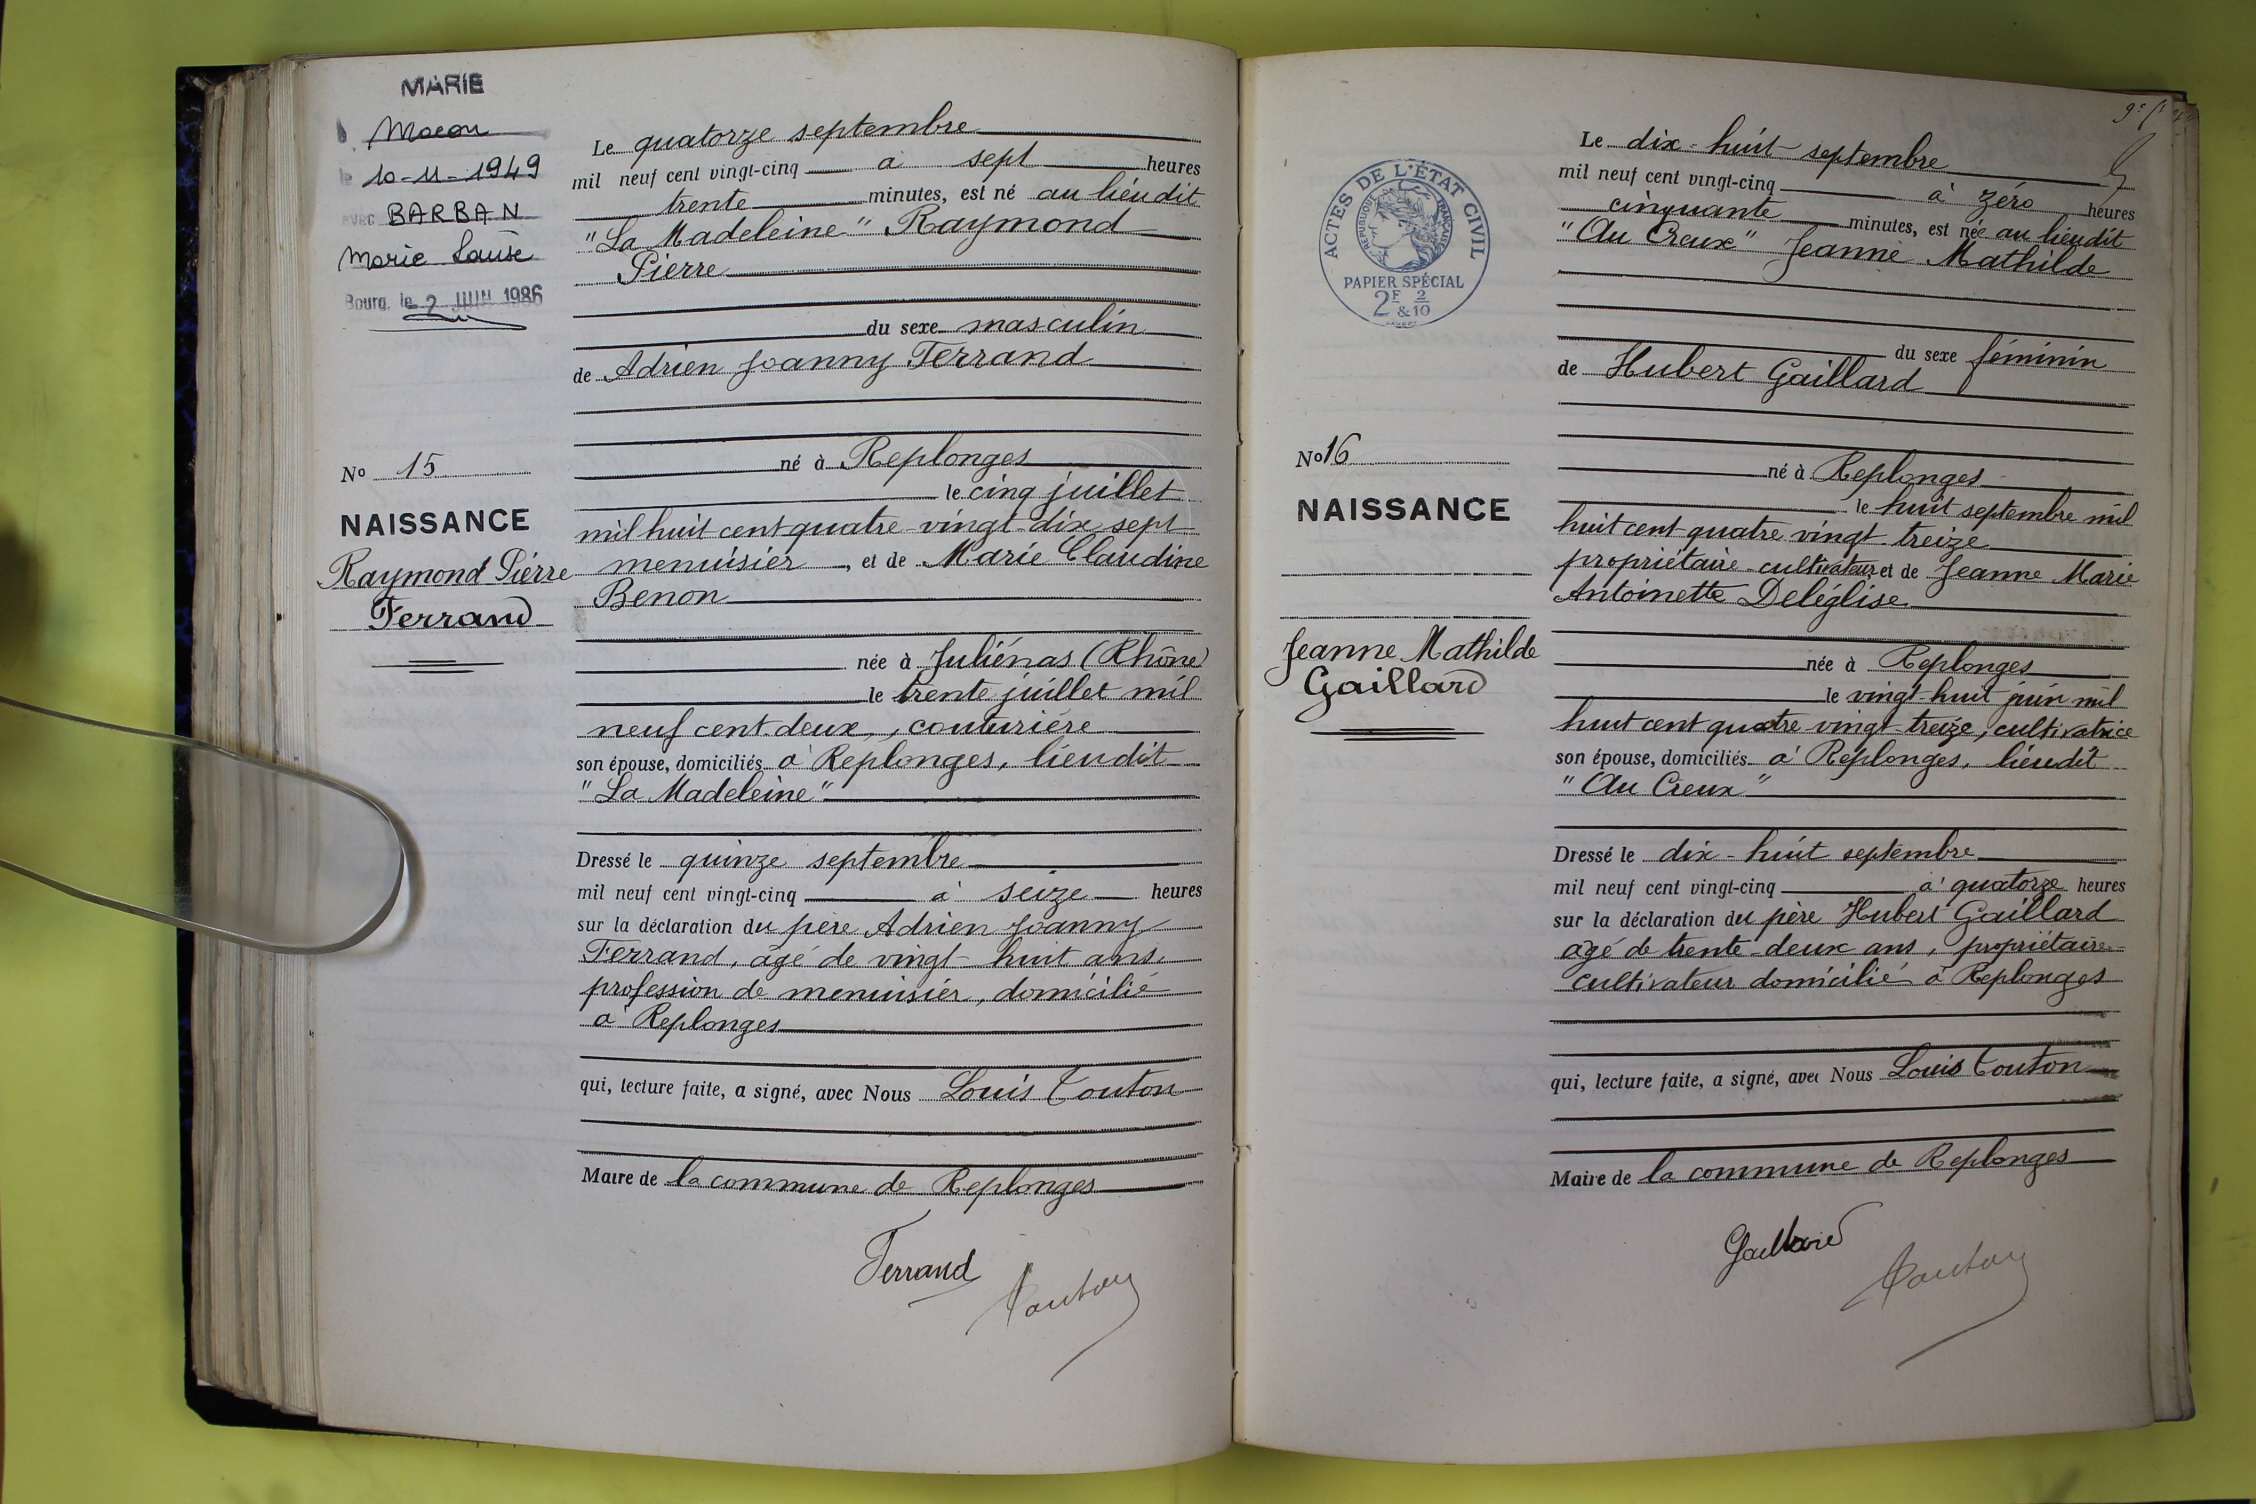 MARIÉ
à Macon
le 10-11-1949
avec BARBAN
Marie Louise
Bourg, le 2 JUIN 1986
No 15
NAISSANCE
Raymond Pierre
Ferrand
Le quatorze septembre
mil neuf cent vingt-cinq à sept heures
trente minutes, est né au lieu dit
"La Madeleine" Raymond
Pierre
du sexe masculin
de Adrien Joanny Ferrand
né à Replonges
le cinq juillet
mil huit cent quatre-vingt-dix sept
menuisier, et de Marie Claudine
Benon
née à Juliénas (Rhône)
le trente juillet mil
neuf cent deux, couturière
son épouse, domiciliés à Replonges, lieu dit
"La Madeleine"
Dressé le quinze septembre
mil neuf cent vingt-cinq à seize heures
sur la déclaration du père Adrien Joanny
Ferrand, âgé de vingt-huit ans,
profession de menuisier, domicilié
à Replonges
qui, lecture faite, a signé, avec Nous Louis Touton
Maire de la commune de Replonges
Ferrand
Touton
ACTES DE L'ÉTAT CIVIL
RÉPUBLIQUE FRANÇAISE
PAPIER SPÉCIAL
2F & 2/10
No 16
NAISSANCE
Jeanne Mathilde
Gaillard
Le dix-huit septembre
mil neuf cent vingt-cinq à zéro heures
cinquante minutes, est née au lieu dit
"Au Creux" Jeanne Mathilde
du sexe féminin
de Hubert Gaillard
né à Replonges
le huit septembre mil
huit cent quatre vingt treize
propriétaire-cultivateur et de Jeanne Marie
Antoinette Deleglise
née à Replonges
le vingt-huit juin mil
huit cent quatre vingt-treize, cultivatrice
son épouse, domiciliés à Replonges, lieu dit
"Au Creux"
Dressé le dix-huit septembre
mil neuf cent vingt-cinq à quatorze heures
sur la déclaration du père Hubert Gaillard
âgé de trente-deux ans, propriétaire-
cultivateur domicilié à Replonges
qui, lecture faite, a signé, avec Nous Louis Touton
Maire de la commune de Replonges
Gaillard
Touton